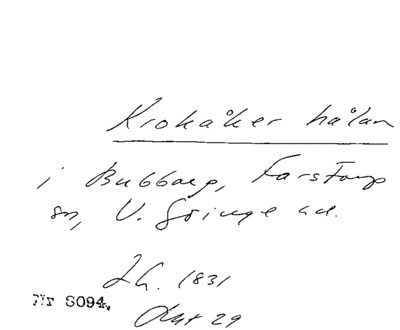 Krokåker hålan
i Bubbarp, Färstorp
sn, V. Göinge hd.
1831
Nr 8094.
Akt 29